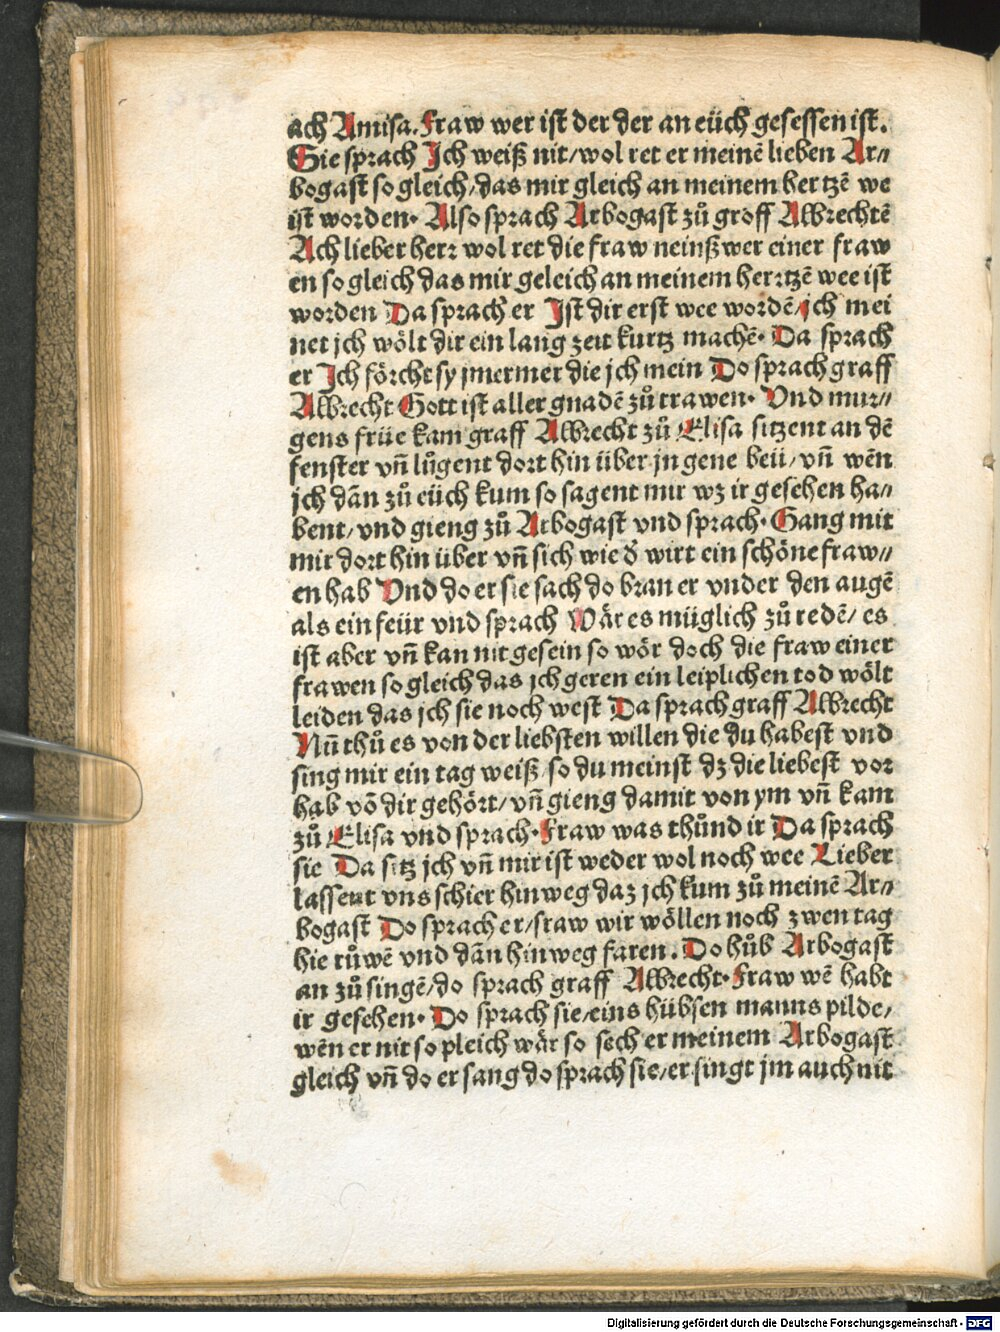 ach Amisa. Fraw wer ist der der an eüch gesessen ist.
Sie sprach Ich weiß nit/wol ret er meinē lieben Ar⸗
bogast so gleich/das mir gleich an meinem hertzē we
ist worden. Also sprach Arbogast zů groff Albrechtē
Ach lieber herr wol ret die fraw neinßwer einer fraw
en so gleich das mir geleich an meinem herrtzē wee ist
worden Da sprach er Ist dir erst wee wordē/ich mei
net jch wölt dir ein lang zeit kurtz machē. Da sprach
er Ich förcht sy jmermer die jch mein Do sprach graff
Albrecht Gott ist aller gnadē zů trawen. Vnd mur⸗
gens früe kam graff Albrecht zů Elisa sitzent an dē
fenster vñ lůgent dort hin über jn gene beü/vñ wēn
jch dān zů eüch kum so sagent mir wz ir gesehen ha⸗
bent/vnd gieng zů Arbogast vnd sprach. Gang mit
mir dort hin über vñ sich wie d̕ wirt ein schöne fraw⸗
en hab Vnd do er sie sach do bran er vnder den augē
als ein feür vnd sprach Wär es müglich zů redē/es
ist aber vñ kan nit gesein so wör doch die fraw einer
frawen so gleich das jch geren ein leiplichen tod wölt
leiden das jch sie noch west Da sprach graff Albrecht
Nū thů es von der liebsten willen die du habest vnd
sing mir ein tag weiß/so du meinst dz die liebest vor
hab vō dir gehört/vñ gieng damit von ym vñ kam
zů Elisa vnd sprach. Fraw was thůnd ir Da sprach
sie Da sitz jch vñ mir ist weder wol noch wee Lieber
lassent vns schier hinweg daz jch kum zů meinē Ar⸗
bogast Do sprach er/fraw wir wöllen noch zwen tag
hie růwē vnd dān hinweg faren. Do hůb Arbogast
an zů singē/do sprach graff Albrecht. Fraw wē habt
ir gesehen. Do sprach sie/eins hübsen manns pilde/
wēn er nit so pleich wär so sech er meinem Arbogast
gleich vñ do er sang do sprach sie/er singt jm auch nit
Digitalisierung gefördert durch die Deutsche Forschungsgemeinschaft - DFG